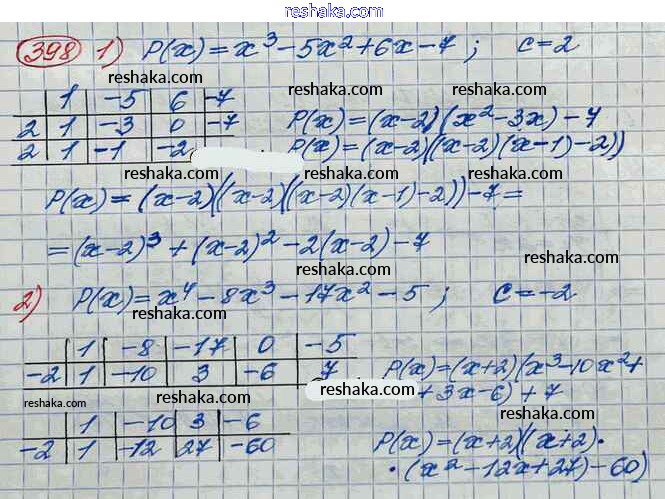 reshak.ru
398 1) P(x) = x³ - 5x² + 6x - 7 ; c = 2
reshaka.com
1 -5 6 -7
reshaka.com
2 1 -3 0 -7 P(x) = (x-2)(x² - 3x) - 7
2 1 -1 -2 P(x) = (x-2)((x-2)(x-1)-2))
reshaka.com reshaka.com
P(x) = (x-2)((x-2)((x-2)(x-1)-2))-7 =
reshaka.com reshaka.com
= (x-2)³ + (x-2)² - 2(x-2) - 7
reshaka.com
2) P(x) = x⁴ - 8x³ - 17x² - 5 ; c = -2
reshaka.com reshaka.com
1 -8 -17 0 -5
reshaka.com
-2 1 -10 3 -6 7 P(x) = (x+2)(x³ - 10x² +
reshaka.com
+ 3x - 6) + 7
reshaka.com reshaka.com reshaka.com
1 -10 3 -6
-2 1 -12 27 -60 P(x) = (x+2)((x+2)·
reshaka.com reshaka.com
·(x² - 12x + 27) - 60)